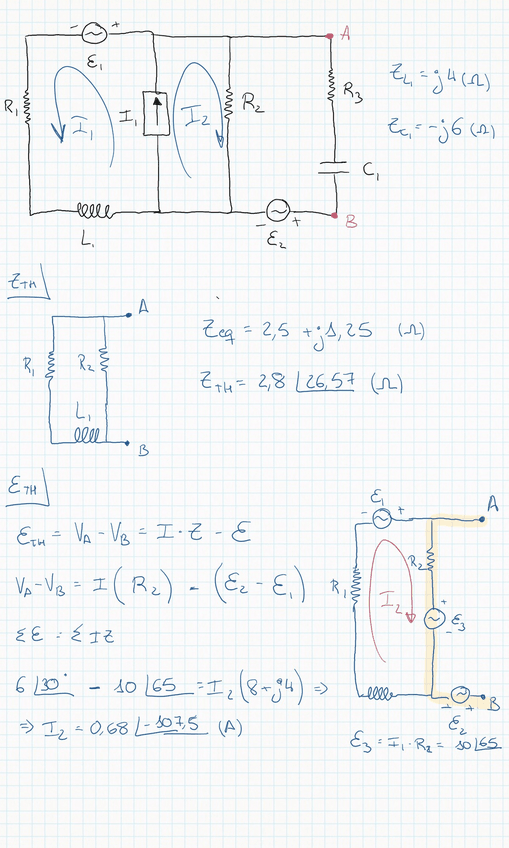 - +
A
ε₁
R₁
I₁
I₁
I₂
R₂
R₃
Z_L₁ = j4 (Ω)
Z_C₁ = -j6 (Ω)
C₁
L₁
- +
ε₂
B
Z_TH
A
R₁
R₂
L₁
B
Z_eq = 2,5 + j1,25 (Ω)
Z_TH = 2,8 ∠26,57 (Ω)
ε_TH
ε_TH = V_A - V_B = I · Z - ε
V_A - V_B = I (R₂) - (ε₂ - ε₁)
Σε = ΣIZ
6 ∠30° - 10 ∠65 = I₂ (8+j4) ⇒
⇒ I₂ = 0,68 ∠-107,5 (A)
ε₁
- +
A
R₂
R₁
I₂
+
ε₃
-
B
- +
ε₂
ε₃ = I₁ · R₂ = 10 ∠65